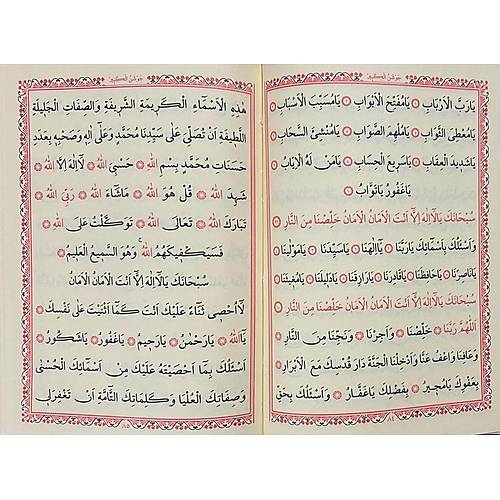 جوشن الكبير
يَارَبَّ الْاَرْبَابِ ۞ يَامُفَتِّحَ الْاَبْوَابِ ۞ يَامُسَبِّبَ الْاَسْبَابِ ۞
يَامُعْطِىَ الثَّوَابِ ۞ يَامُلْهِمَ الصَّوَابِ ۞ يَامُنْشِئَ السَّحَابِ ۞
يَاشَدِيدَ الْعِقَابِ ۞ يَاسَرِيعَ الْحِسَابِ ۞ يَامَنْ لَهُ الْاِيَابُ ۞
يَاغَفُورُ يَاتَوَّابُ ۞
سُبْحَانَكَ يَالَآاِلٰهَ اِلَّآ اَنْتَ الْاَمَانُ الْاَمَانُ خَلِّصْنَا مِنَ النَّارِ ۞
وَاَسْئَلُكَ بِاَسْمَائِكَ يَارَبَّنَا ۞ يَااِلٰهَنَا ۞ يَاسَيِّدَنَا ۞ يَامَوْلٰينَا ۞
يَانَاصِرَنَا ۞ يَاحَافِظَنَا ۞ يَاقَادِرَنَا ۞ يَارَازِقَنَا ۞ يَادَلِيلَنَا ۞ يَامُغِيثَنَا ۞
سُبْحَانَكَ يَالَآاِلٰهَ اِلَّآ اَنْتَ الْاَمَانُ الْاَمَانُ خَلِّصْنَا مِنَ النَّارِ ۞
اَللّٰهُمَّ رَبَّنَا ۞ خَلِّصْنَا ۞ وَاَجِرْنَا ۞ وَنَجِّنَا مِنَ النَّارِ ۞
وَعَافِنَا وَاعْفُ عَنَّا وَاَدْخِلْنَا الْجَنَّةَ دَارَ قُدْسِكَ مَعَ الْاَبْرَارِ ۞
بِعَفْوِكَ يَامُجِيرُ ۞ بِفَضْلِكَ يَاغَفَّارُ ۞ وَاَسْئَلُكَ بِحَقِّ
٨٤
جوشن الكبير
هٰذِهِ الْاَسْمَآءِ الْكَرِيمَةِ الشَّرِيفَةِ وَالصِّفَاتِ الْجَلِيلَةِ
اللَّطِيفَةِ اَنْ تُصَلِّىَ عَلٰى سَيِّدِنَا مُحَمَّدٍ وَعَلٰى اٰلِهِ وَصَحْبِهِ بِعَدَدِ
حَسَنَاتِ مُحَمَّدٍ بِسْمِ اللّٰهِ ۞ حَسْبِىَ اللّٰهُ ۞ لَآ اِلٰهَ اِلَّا اللّٰهُ ۞
شَهِدَ اللّٰهُ ۞ قُلْ هُوَ اللّٰهُ ۞ مَاشَآءَ اللّٰهُ ۞ رَبِّىَ اللّٰهُ ۞
تَبَارَكَ اللّٰهُ ۞ تَعَالَى اللّٰهُ ۞ تَوَكَّلْتُ عَلَى اللّٰهِ ۞
فَسَيَكْفِيكَهُمُ اللّٰهُ ۚ وَهُوَ السَّمِيعُ الْعَلِيمُ ۞
سُبْحَانَكَ يَالَآاِلٰهَ اِلَّآ اَنْتَ الْاَمَانُ الْاَمَانُ
لَآاُحْصِى ثَنَآءً عَلَيْكَ اَنْتَ كَمَآ اَثْنَيْتَ عَلٰى نَفْسِكَ ۞
يَآاَللّٰهُ ۞ يَارَحْمٰنُ ۞ يَارَحِيمُ ۞ يَاغَفُورُ ۞ يَاشَكُورُ ۞
اَسْئَلُكَ بِمَآ اَحْصَيْتَهُ عَلَيْكَ مِنْ اَسْمَائِكَ الْحُسْنٰى
وَصِفَاتِكَ الْعُلْيَا وَكَلِمَاتِكَ التَّآمَّةِ اَنْ تَغْفِرَلِى